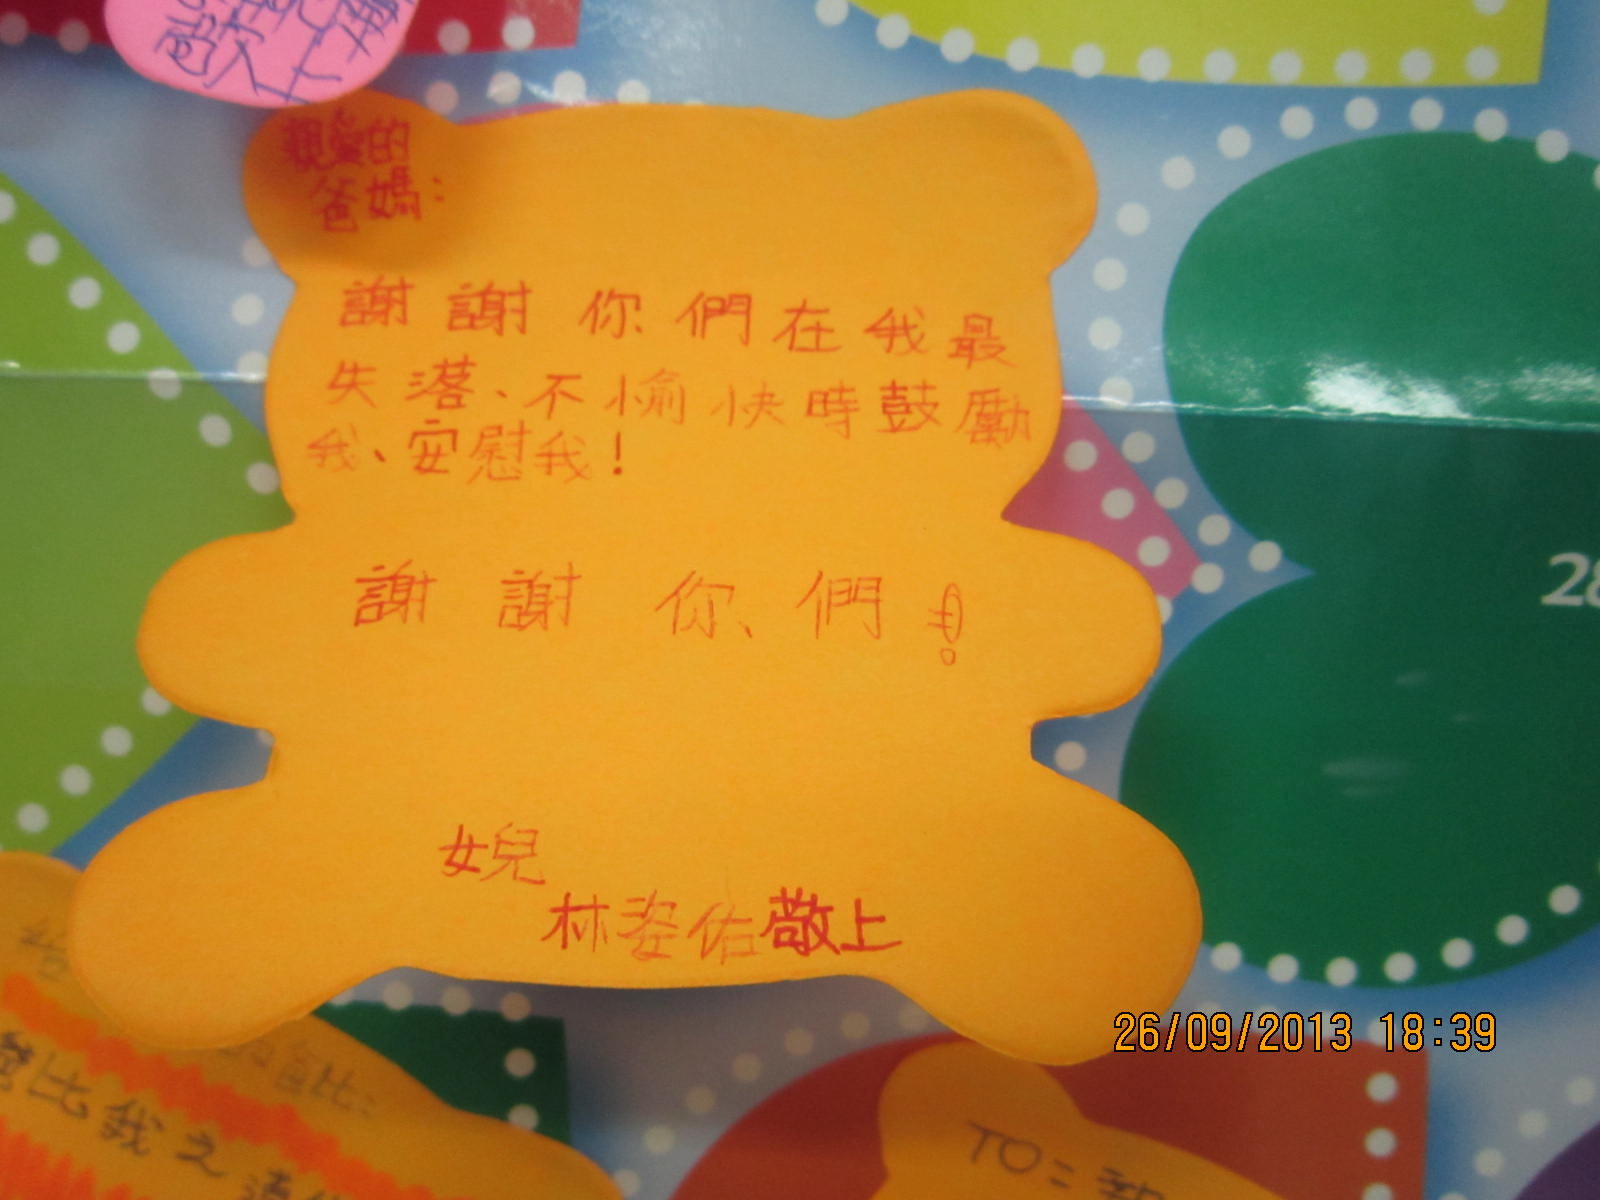 敬上
親愛的
爸媽:
謝謝你們在我最
失落、不愉快時鼓勵
我、安慰我!
謝謝你們!
女兒
林姿佑敬上
28
26/09/2013 18:39
比我之
TO: